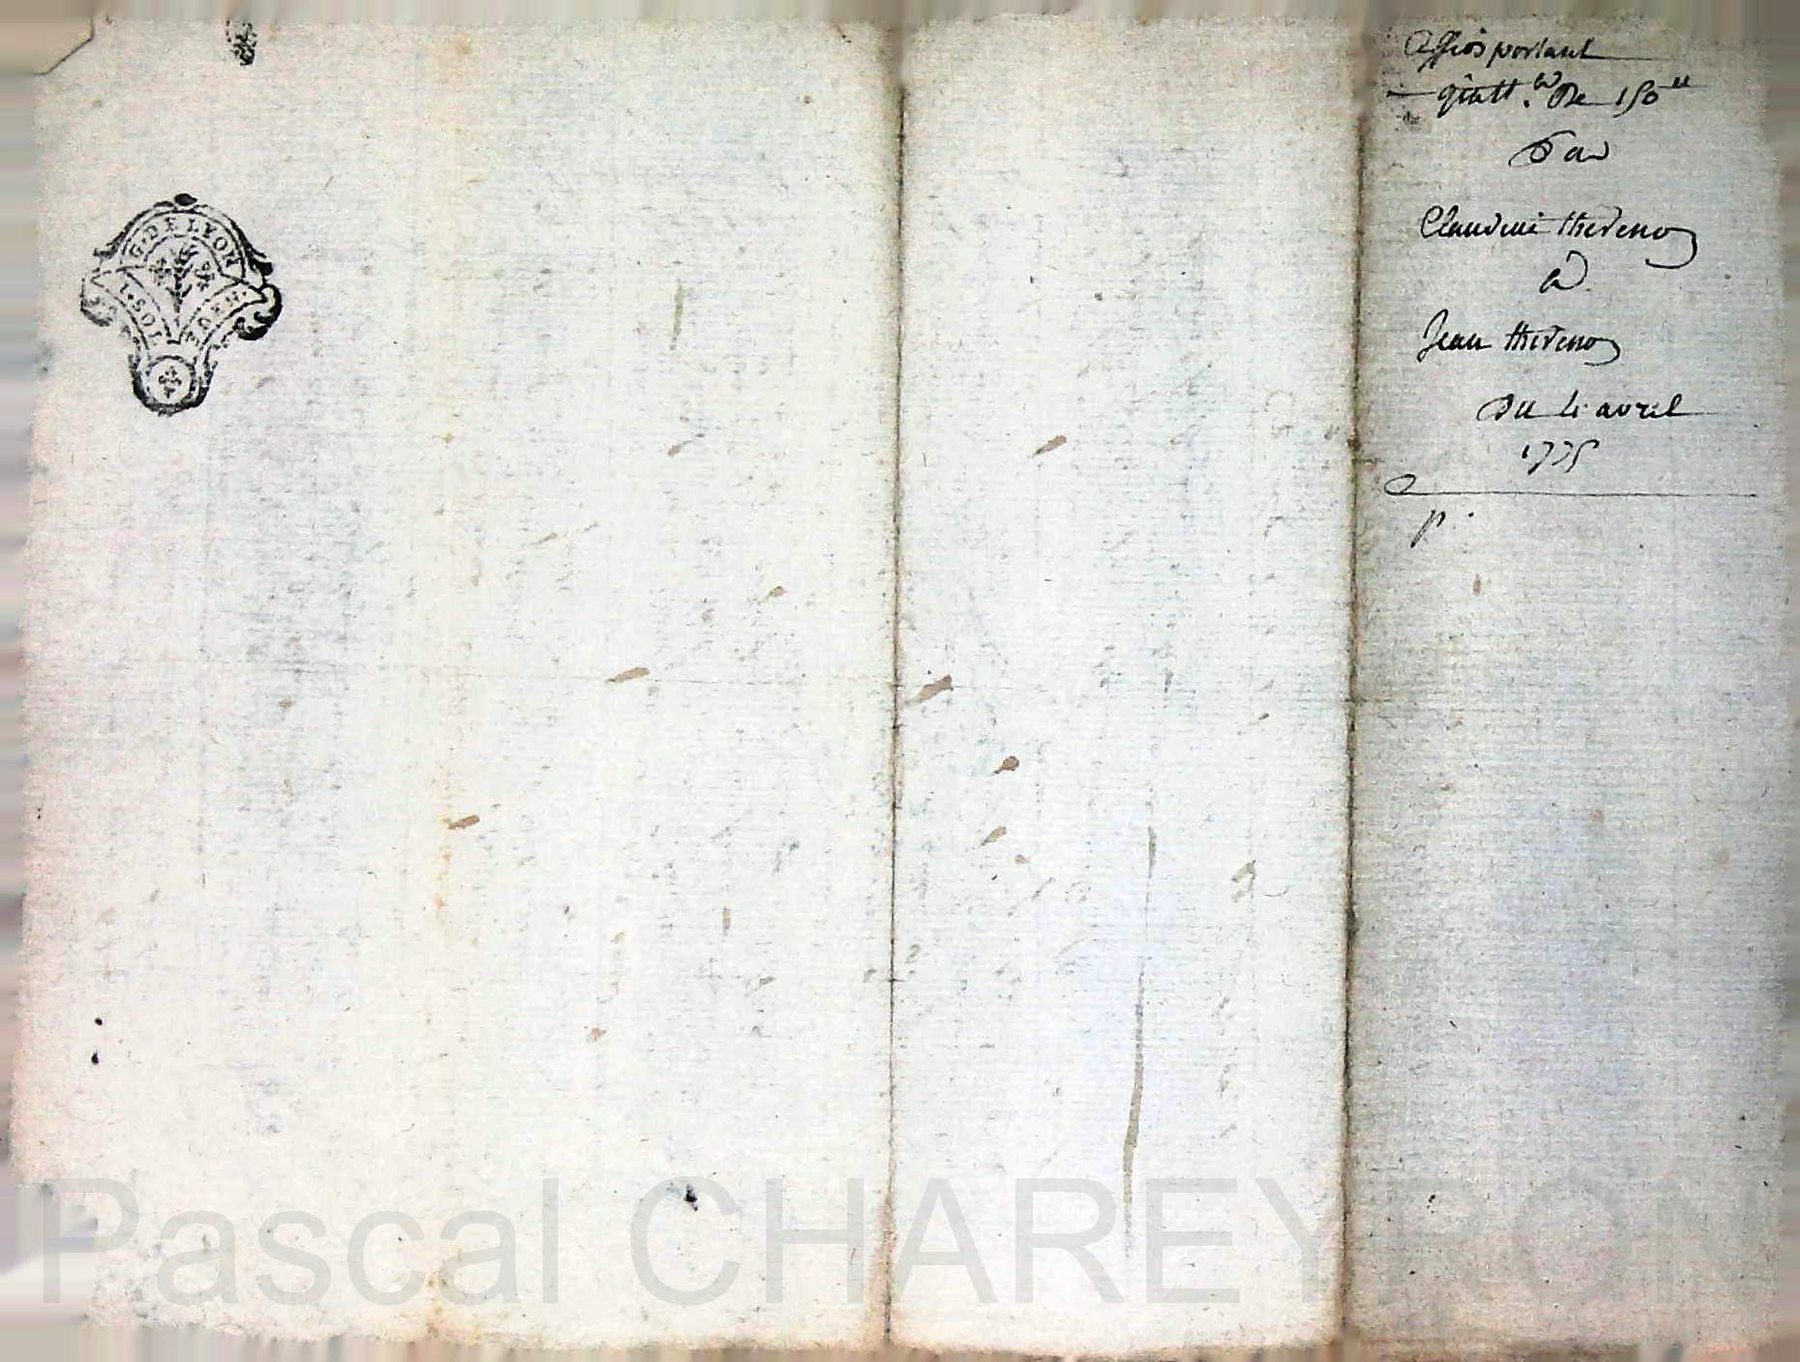 G. DE LYON
1. SOL
portant
quitt.ce De 150 ''
Par
Claudine thevenon
à
Jean thevenon
Du 4 avril
1775
p.
Pascal CHAREYRON